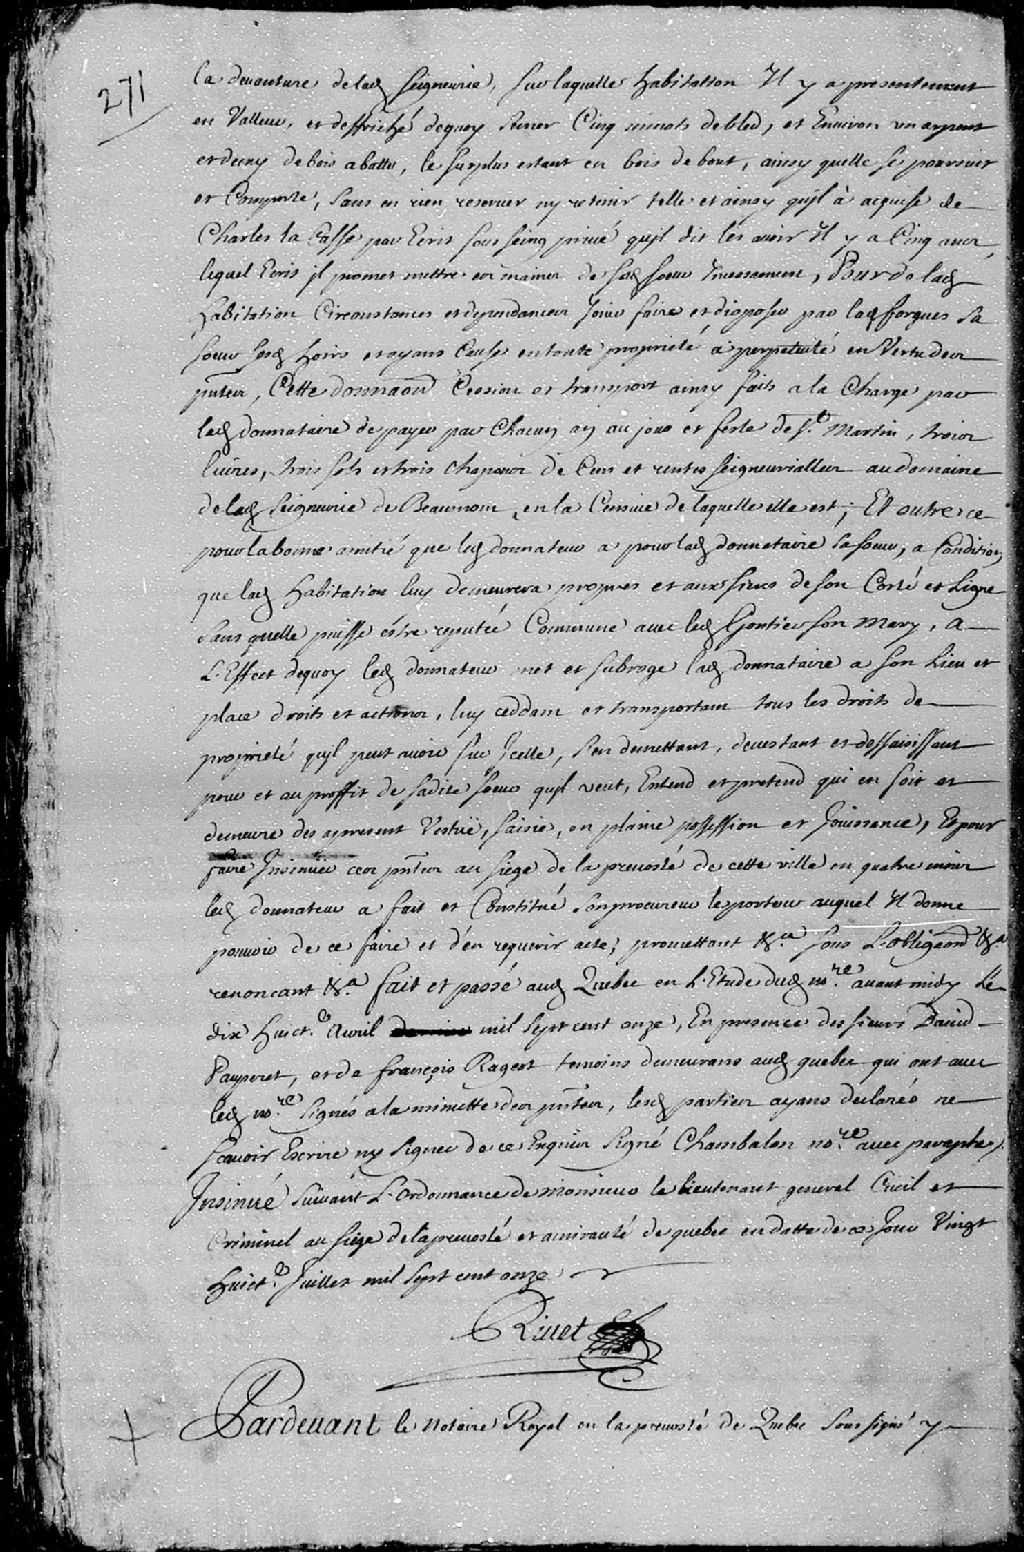 271
la devanture de lad seigneurie, sur laquelle habitation Il y a presentement
en Valleur, et deffriché dequoy semer Cinq minots de bled, et Environ un arpent
et demy de bois abattu, le surplus estant en bois de bout, ainsy quelle se poursuit
et Comporte, sans en rien reserver ny retenir telle et ainsy qujl à acquise de
Charles la Casse par Ecris sous seing privé qujl dit les avoir Il y a Cinq ans,
lequel Ecris jl promet mettre es mains de sad soeur Incessament, Pour de lad
habitation Circonstances et dependances Jouir faire et disposer par lad forgues sa
soeur sesd hoirs et ayans Cause en toute proprieté à perpetuité en Vertu des
pntes, Cette donnaon Cession et transport ainsy faits a la Charge par
lad donnataire de payer par Chacun an au jour et feste de St. Martin, trois
livres, trois sols et trois chapons de Cens et rentes seigneurialles au domaine
de lad Seigneurie de Beaumont, en la Censive de laquelle elle est; Et outre ce
pour la bonne amitié que led donnateur a pour lad donnataire sa soeur, a Condition
que lad habitation luy demeurera propres et aux siens de son Costé et Ligne
sans quelle puisse éstre reputée Commune avec led Gontier son Mary, a
L'Effect dequoy led donnateur met et subroge lad donnataire a son Lieu et
place droits et actions, luy ceddant et transportant tous les droits de
proprieté qujl peut avoir sur Jcelle, s'en demettant, devestant et dessaisissant
pour et au proffit de sadite soeur qujl veut, Entend et pretend qui en soit et
demeure des apresent Vestüe, saisie, en plaine possession et Jouissance, Et pour
faire Insinuer ces pntes au siege de la prevosté de cette ville en quatre mois
led donnateur a fait et Constitué son procureur le porteur auquel Il donne
pouvoir de ce faire et d'en requerir acte; promettant &ca. sous L'obligeaon &a.
renoncant &a. fait et passé aud Quebec en L'Etude dud nore. avant midy Le
dix huict.e Avril mil sept cent onze, En presence des sieurs David
Pauperet, et de françois Rageot temoins demeurans aud quebec qui ont avec
led nore. signés a la minutte des pntes, lesd parties ayans declarés ne
scavoir Escrire ny signer de ce Enquis signé Chambalon nore. avec paraphe/.
Insinué suivant L'Ordonnance de monsieur le lieutenant general Civil et
Criminel au siege de la prevosté et amirauté de quebec en datte de ce Jour Vingt
huict.e Juillet mil sept cent onze
Rivet
Pardevant le notaire Royal en la prevosté de Quebec soussigné y